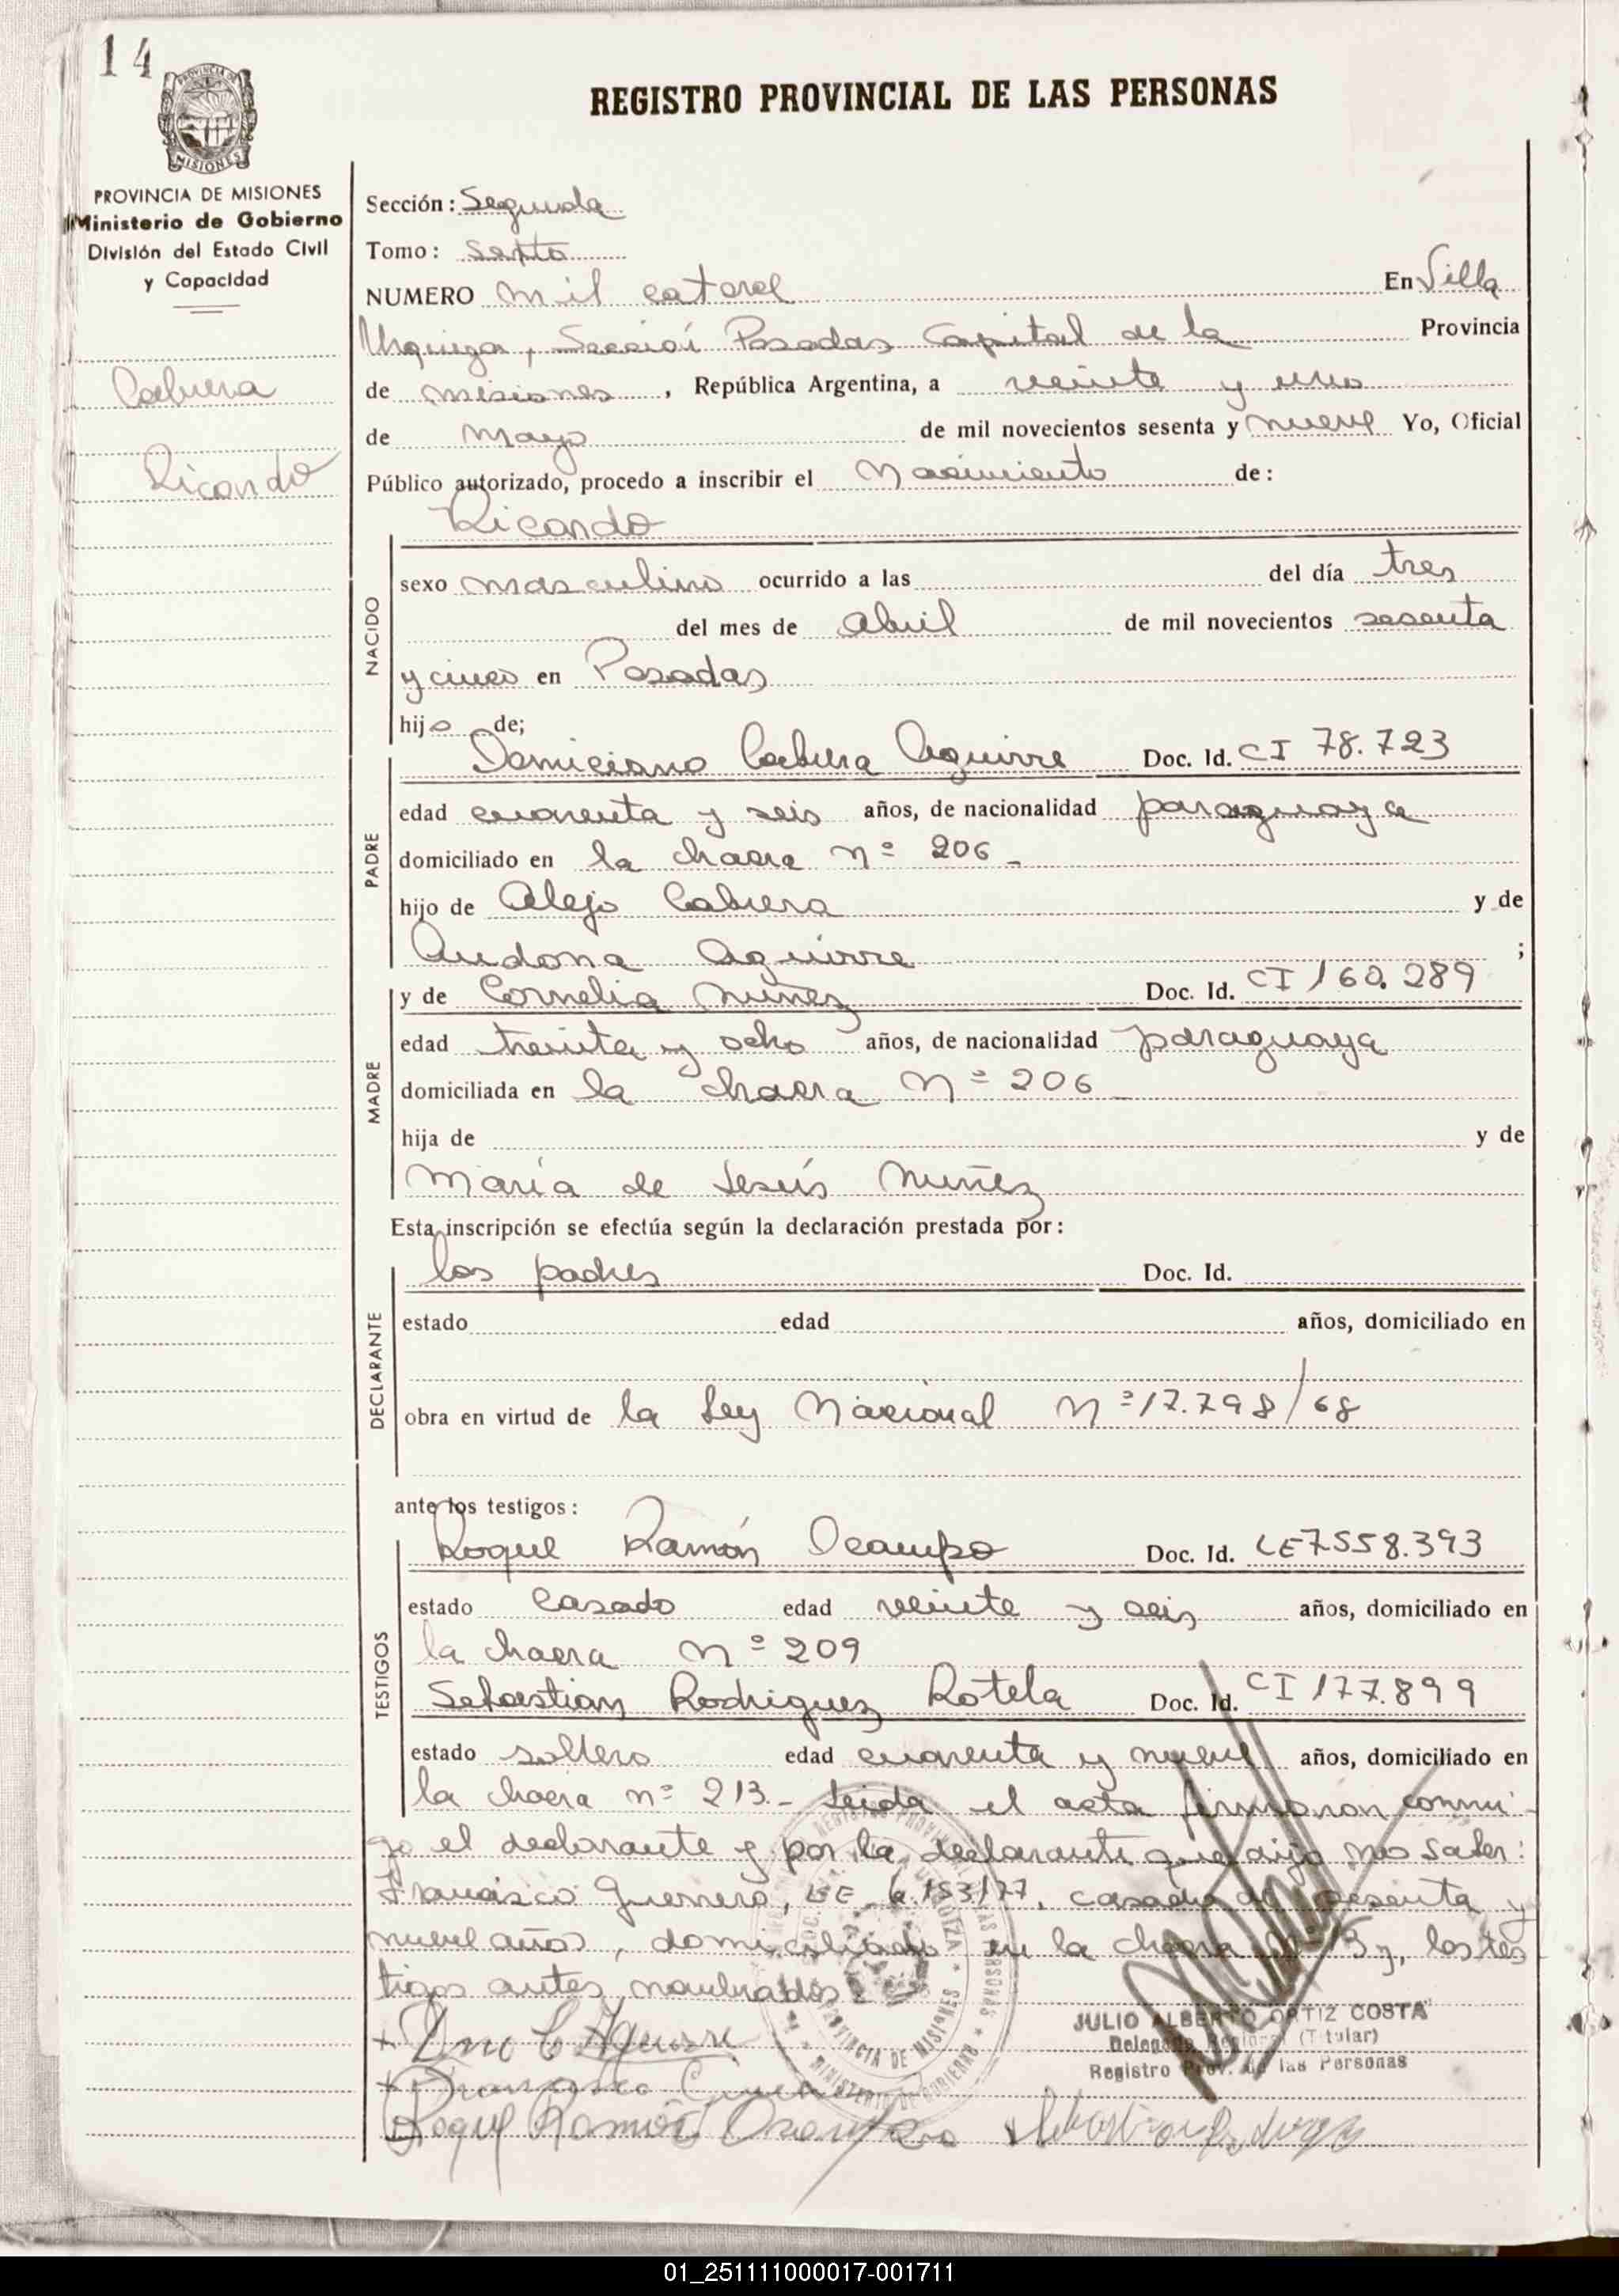 14
REGISTRO PROVINCIAL DE LAS PERSONAS
PROVINCIA DE MISIONES
Ministerio de Gobierno
División del Estado Civil
y Capacidad
Cabrera
Ricardo
Sección: Segunda
Tomo: Sexto
NUMERO mil catorce En Villa
Urquiza, Sección Posadas Capital de la Provincia
de misiones, República Argentina, a veinte y uno
de Mayo de mil novecientos sesenta y nueve Yo, Oficial
Público autorizado, procedo a inscribir el Nacimiento de:
Ricardo
NACIDO
sexo masculino ocurrido a las del día tres
del mes de Abril de mil novecientos sesenta
y cinco en Posadas
hijo de;
PADRE
Damiciano Cabrera Aguirre Doc. Id. CI 78.723
edad cuarenta y seis años, de nacionalidad paraguaya
domiciliado en la chacra nº 206 -
hijo de Alejo Cabrera y de
Aguirre ;
MADRE
y de Cornelia Nuñez Doc. Id. CI 160.289
edad treinta y ocho años, de nacionalidad paraguaya
domiciliada en la chacra Nº 206
hija de y de
María de Jesús Nuñez
Esta inscripción se efectúa según la declaración prestada por:
DECLARANTE
los padres Doc. Id.
estado edad años, domiciliado en
obra en virtud de la Ley Nacional Nº 17.798/68
ante los testigos:
TESTIGOS
Roque Ramón Ocampo Doc. Id. LE 7.558.393
estado casado edad veinte y seis años, domiciliado en
la chacra Nº 209
Sebastian Rodriguez Rotela Doc. Id. CI 177.899
estado soltero edad cuarenta y nueve años, domiciliado en
la chacra nº 213.- Leida el acta firmaron conmi-
go el declarante y por la declarante que dijo no saber:
Francisco Guerrero, casado de sesenta y
nueve años, domiciliado en la chacra y, los tes
tigos antes nombrados.
JULIO ALBERTO ORTIZ COSTA
Delegado Regional (Titular)
Registro Prov. de las Personas
Aguirre
Francisco
Roque Ramón Ocampo Sebastian Rodriguez
PROVINCIA DE MISIONES
MINISTERIO DE GOBIERNO
01_251111000017-001711